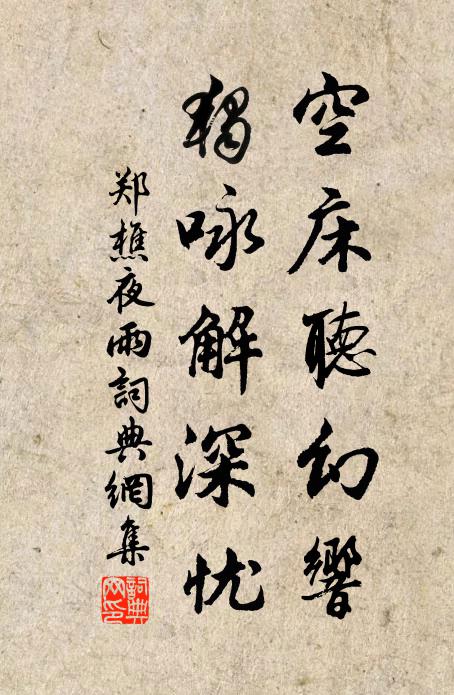 空床聽幻響
獨咏解深忧
郑樵夜雨詞典網集
詞典網印